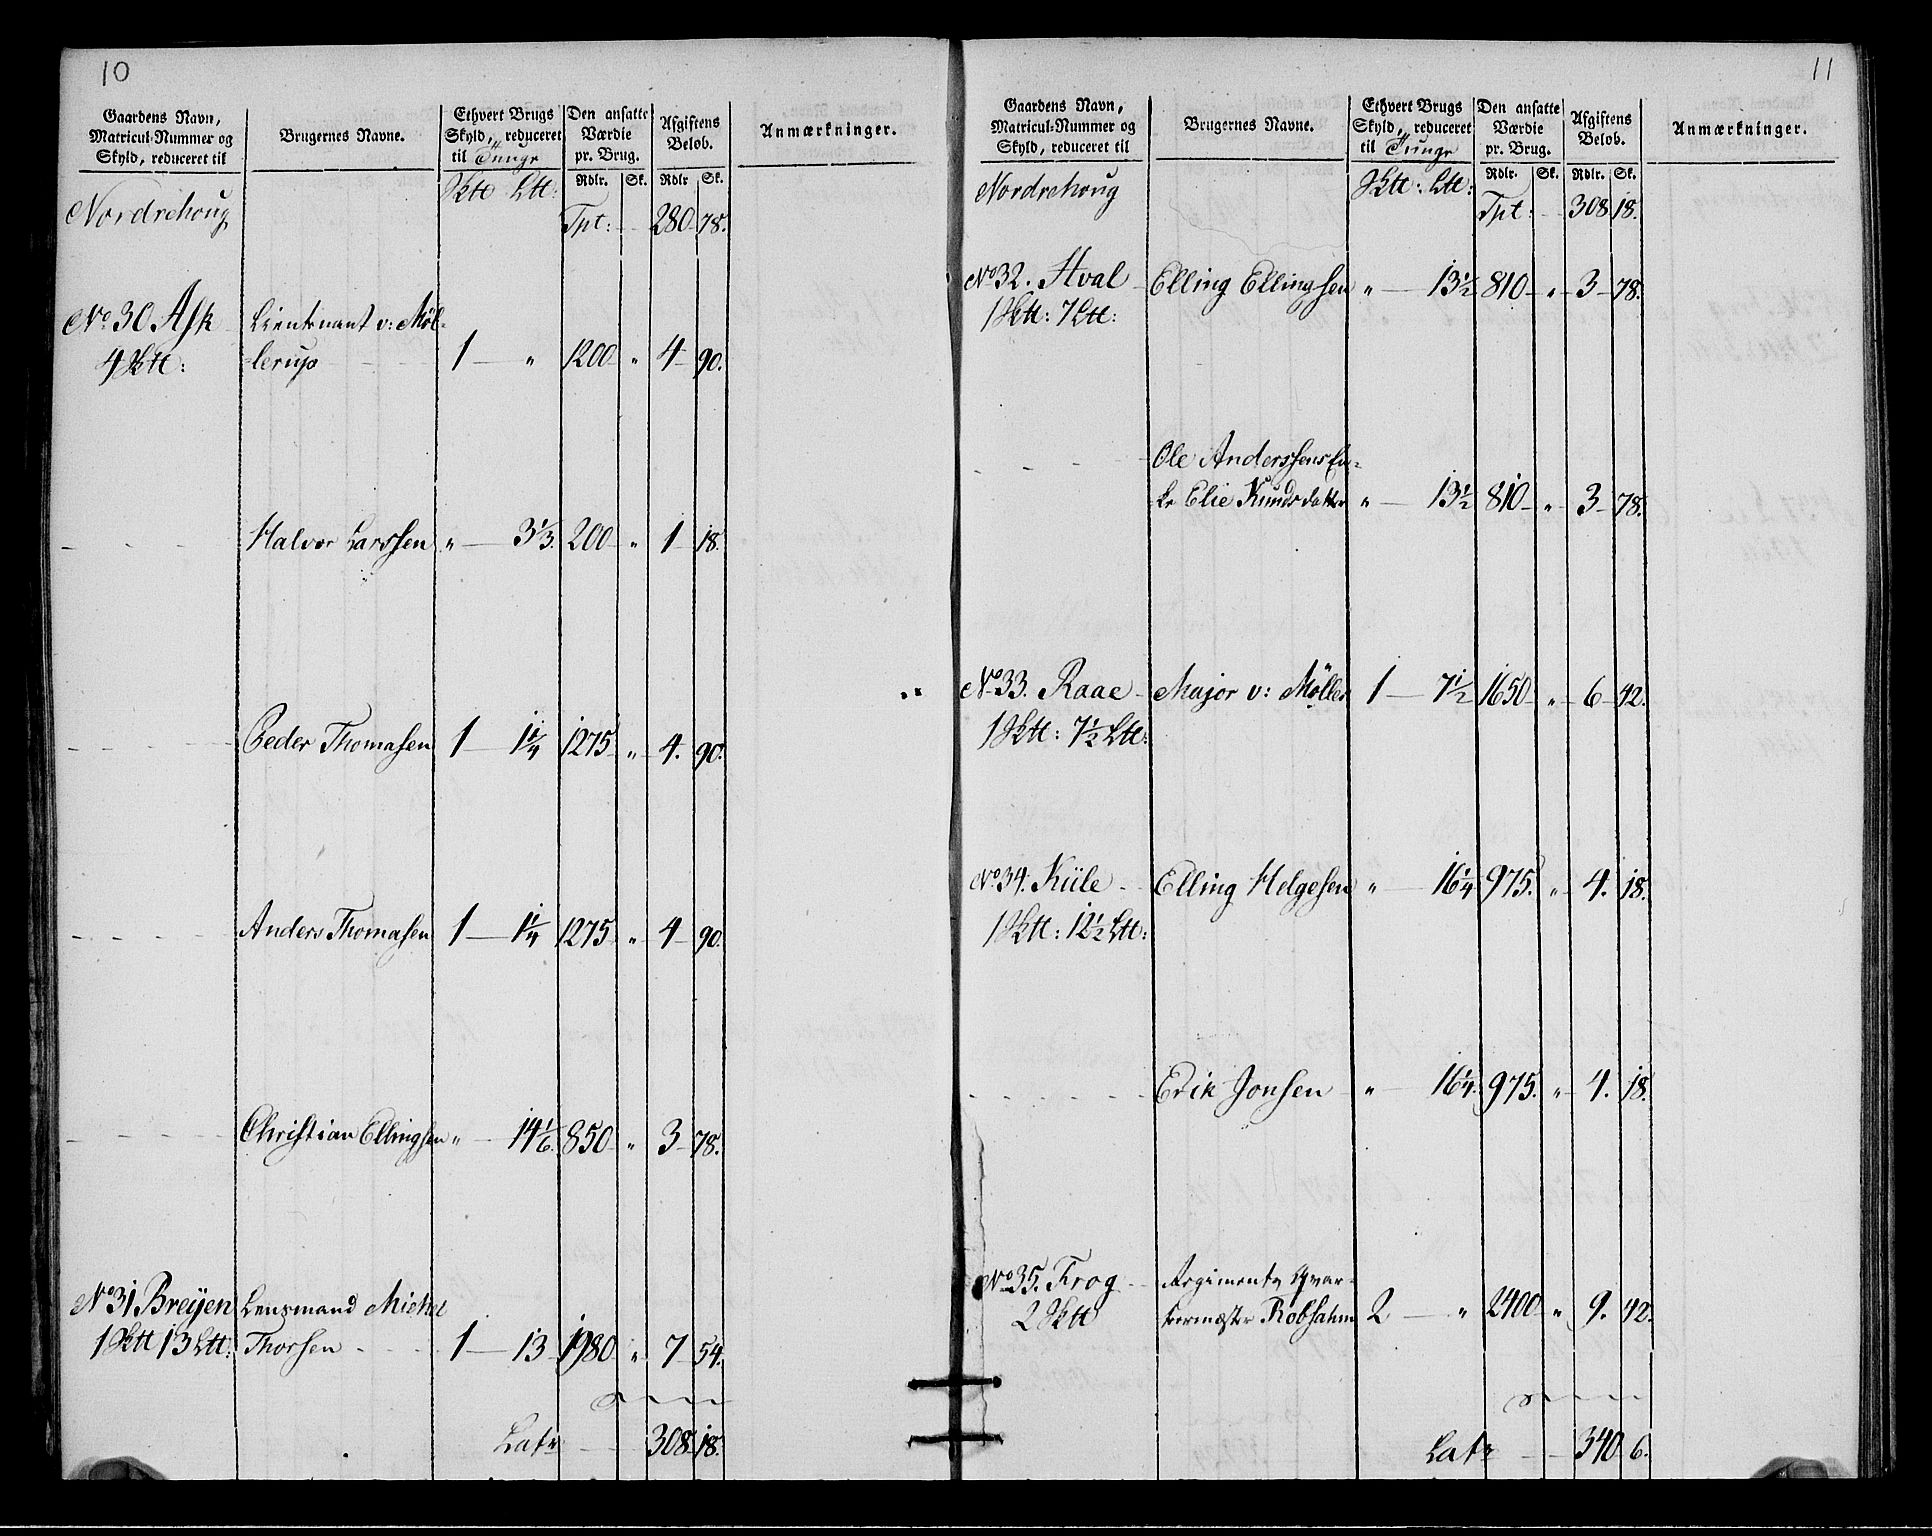 10
Gaardens Navn, Matricul-Nummer og Skyld, reduceret til | Brugernes Navne. | Ethvert Brugs Skyld, reduceret til Tunge | Den ansatte Værdie pr. Brug. | Afgiftens Beløb. | Anmærkninger.
Rdlr. Sk. Rdlr Sk.
Nordrehoug Sktt Ltt: Tpt: 280 78.
No 30 Ask Lieutenant v: Møl-
4 Sktt: lerup 1 — „ 1200 „ 4 90.
Halvor Larssen „ — 3 1/3. 200 „ 1 18.
Peder Thomasen 1 — 1 1/4 1275 „ 4. 90.
Anders Thomasen 1 — 1 1/4 1275 „ 4 90.
Christian Ellingsen „ — 14 1/6. 850 „ 3 78.
No 31 Breijen Lensmand Michel
1 Sktt 13 Ltt: Thorsen 1 — 13 1980 „ 7 54.
Latr 308 18.
11
Gaardens Navn, Matricul-Nummer og Skyld, reduceret til | Brugernes Navne. | Ethvert Brugs Skyld, reduceret til Tunge | Den ansatte Værdie pr. Brug. | Afgiftens Beløb. | Anmærkninger.
Rdlr. Sk. Rdlr. Sk.
Nordrehoug Sktt: Ltt: Tpt: 308 18.
No 32. Hval Elling Ellingsen „ — 13 1/2 810 „ 3 78.
1 Sktt: 7 Ltt:
Ole Anderssens En-
ke Elie Knudsdatter „ — 13 1/2 810 „ 3 78.
No 33. Raae Major v: Møller 1 — 7 1/2 1650 „ 6 42.
1 Sktt: 7 1/2 Ltt:
No 34. Kiile Elling Helgesen „ — 16 1/4 975. „ 4. 18.
1 Sktt: 12 1/2 Ltt:
Erik Jonsen „ — 16 1/4. 975. „ 4. 18.
No 35. Frog Regiments Qvar-
2 Sktt teermæster Robsahm 2 — „ 2400 „ 9. 42.
Latr 340 6.